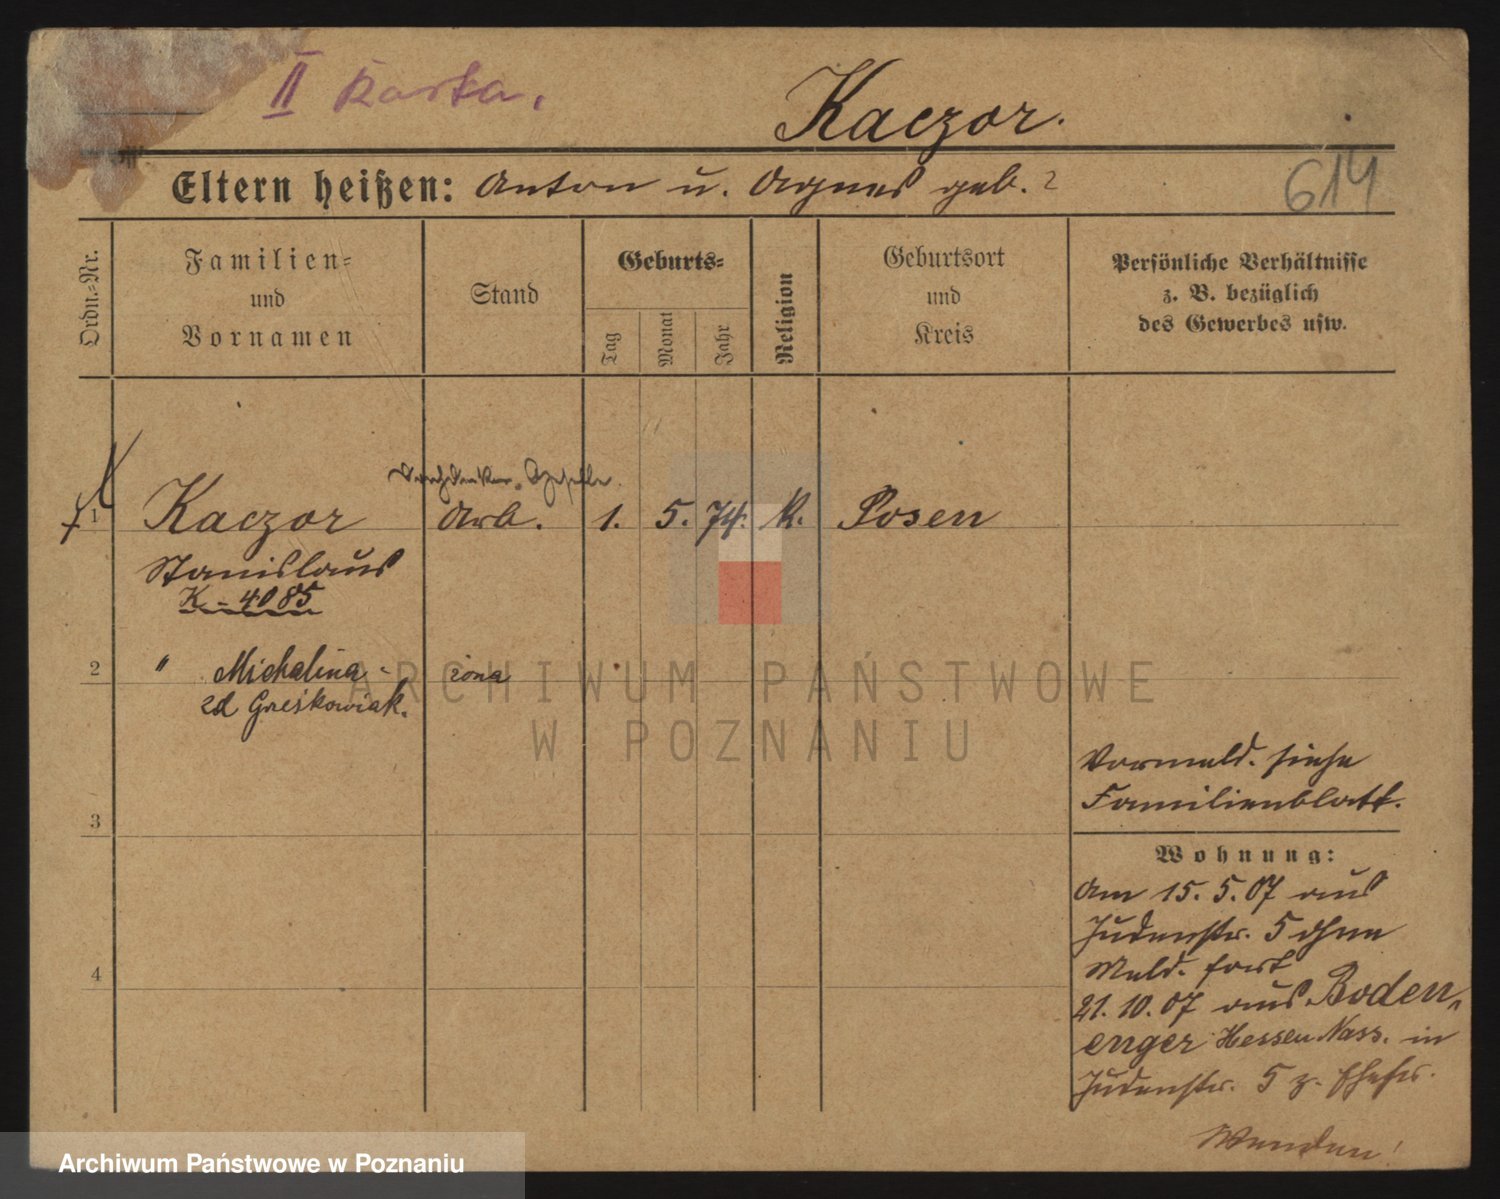 II Karta.
Kaczor.
614
Eltern heißen: Anton u. Agnes geb. ?
Ordn.-Nr.
Familien-
und
Vornamen
Stand
Geburts-
Tag
Monat
Jahr
Religion
Geburtsort
und
Kreis
Persönliche Verhältnisse
z. B. bezüglich
des Gewerbes usw.
1 Kaczor Arb. 1. 5. 74. k. Posen
Stanislaus
K-4085
2 " Michalina - żona
zd Greśkowiak.
3
4
Vormeld. siehe
Familienblatt.
Wohnung:
Am 15. 5. 07 aus
Judenstr. 5 ohne
Meld. fort
21. 10. 07 aus Boden-
enger Hessen Nass. in
Judenstr. 5 z. Ehefr.
Wenden!
ARCHIWUM PAŃSTWOWE
W POZNANIU
Archiwum Państwowe w Poznaniu